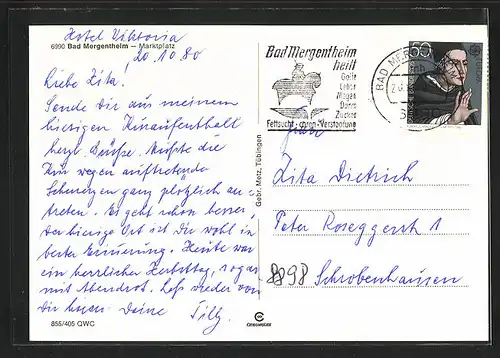 Hotel Viktoria
6990 Bad Mergentheim – Marktplatz
20.10.80
Liebe Zita!
Sende Dir aus meinem
hiesigen Kuraufenthalt
herzl. Grüße. Mußte die
Kur wegen auftretenden
Schmerzen ganz plötzlich an-
treten. Es geht schon besser,
der hiesige Ort ist Dir wohl in
bester Erinnerung. Heute war
ein herrlicher Herbsttag, sogar
mit Abendrot. Laß wieder von
Dir hören. Deine Tilly
855/405 QWC
Gebr. Metz, Tübingen
Bad Mergentheim
heilt
Galle
Leber
Magen
Darm
Zucker
Fettsucht · chron. Verstopfung
BAD MER
60
Zita Dietrich
Peter Roseggerstr 1
8898 Schrobenhausen